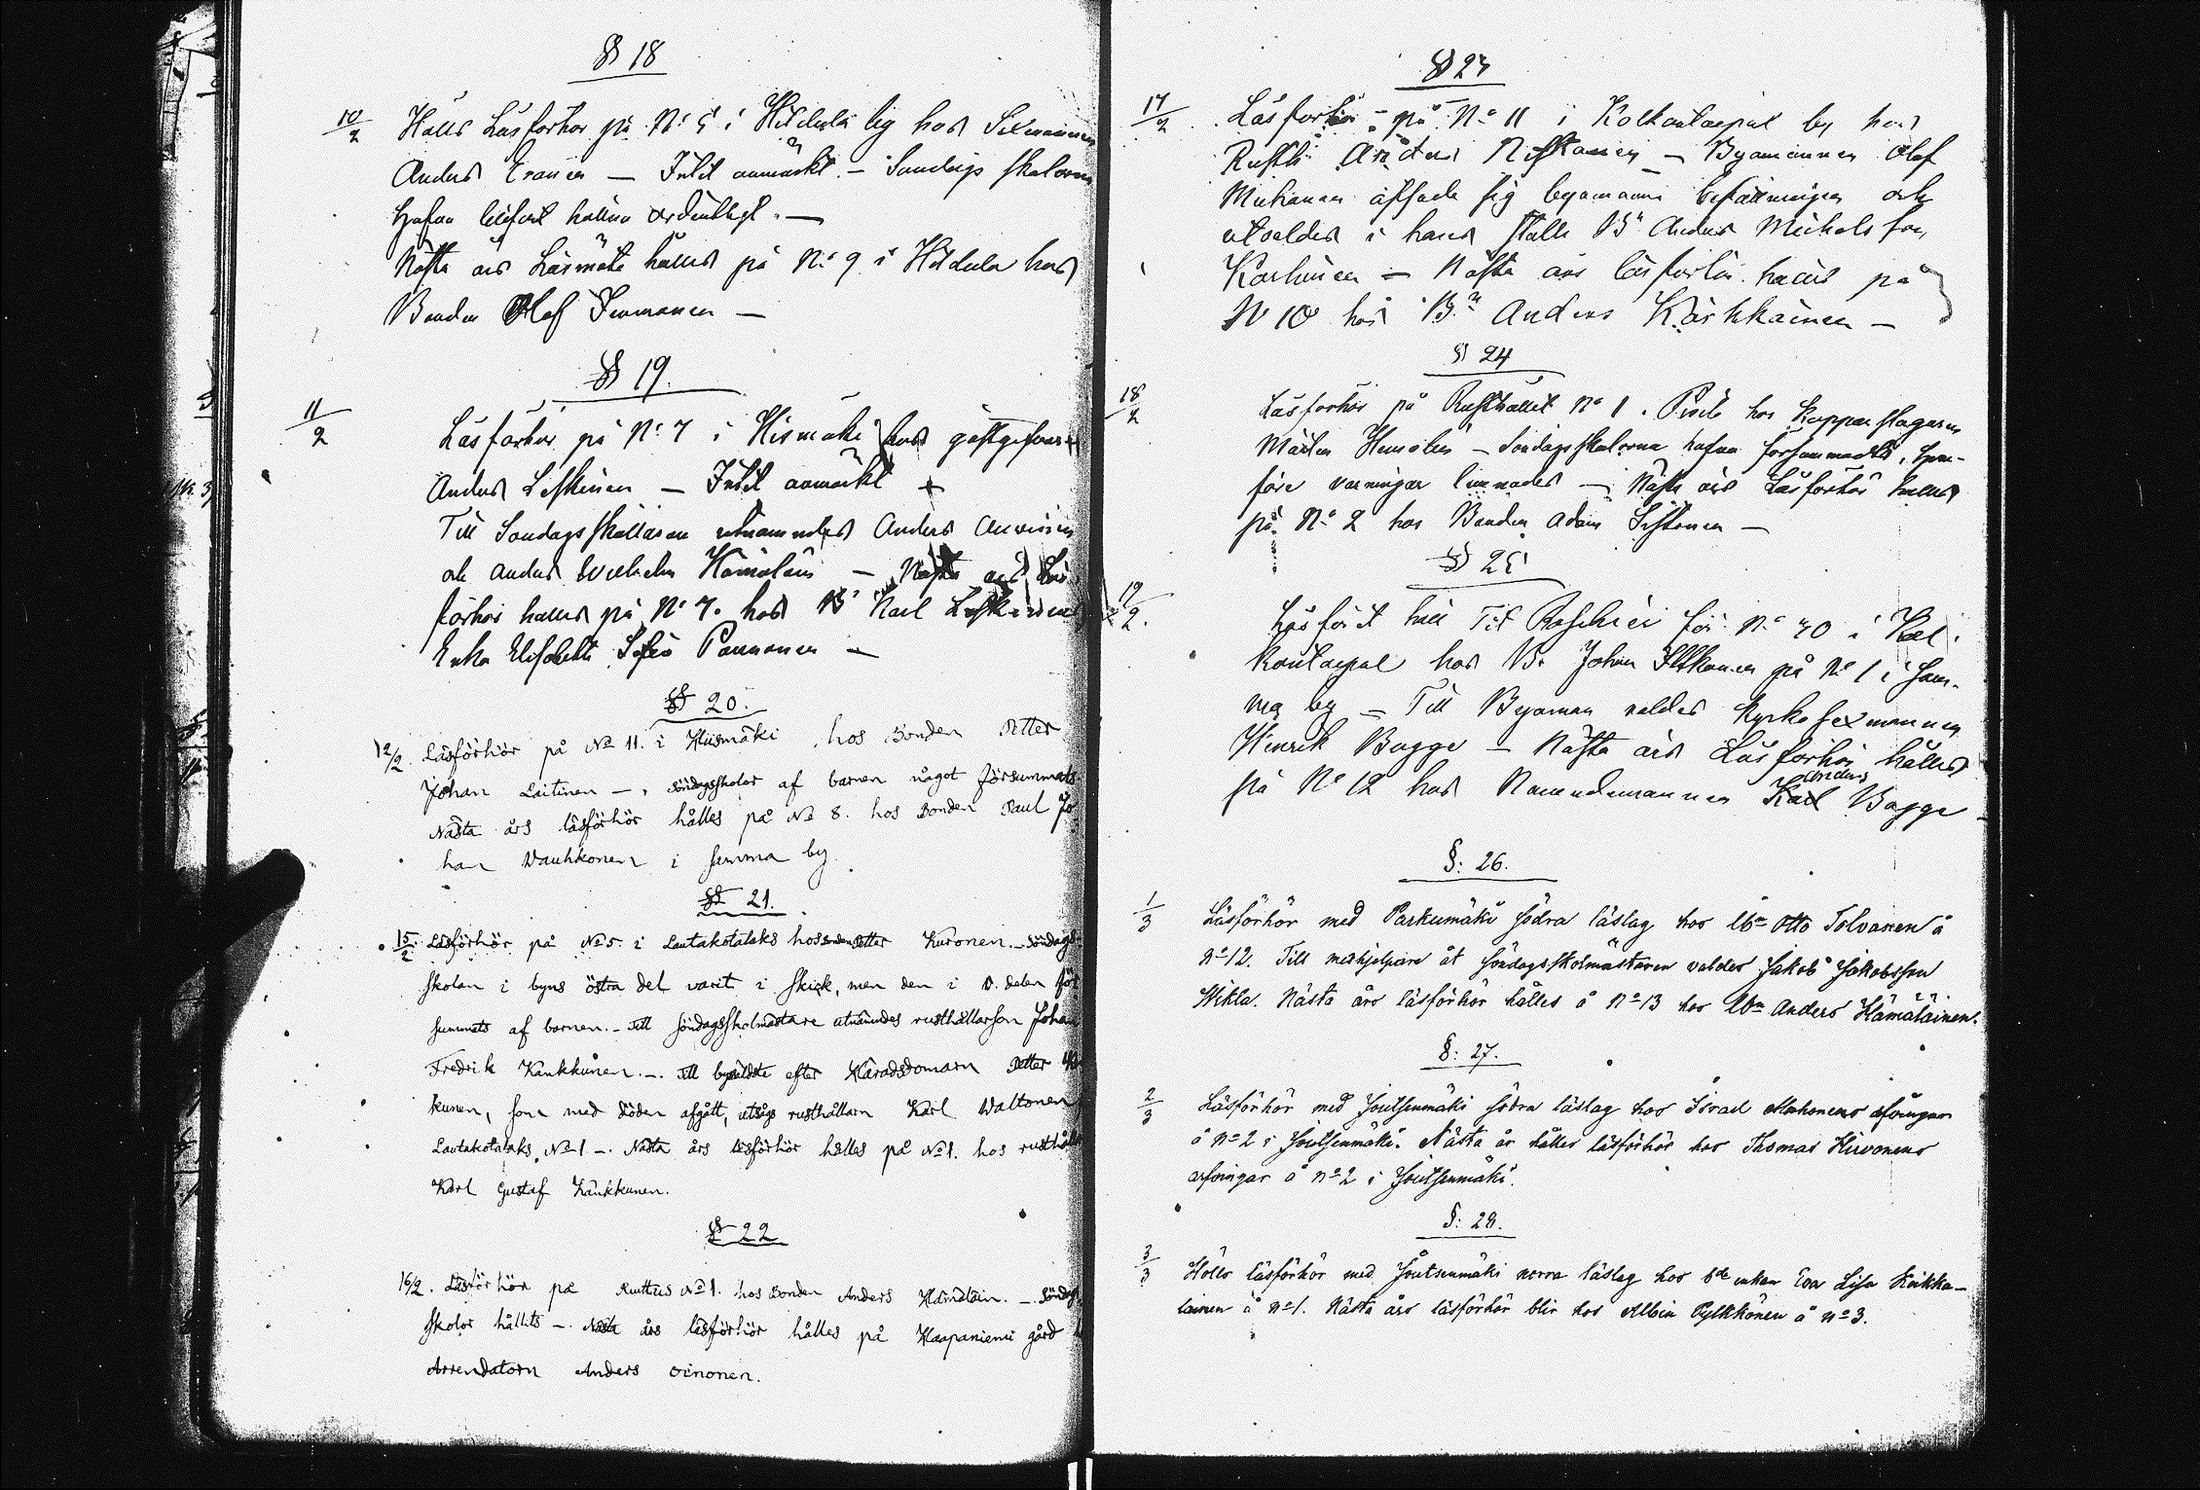 § 18
10/2 Hölls Läsförhör på No 5 i Hiidula by hos Sexmannen
Anders Eronen — Intet anmärkt. — Söndags skolorna
hafva blifvit hållna ordentligt. —
Nästa års Läsmöte hålles på No 9 i Hidula hos
Bonden Olof Immonen —
§ 19.
11/2
Läsförhör på No 7 i Hismäki hos gästgifvar
Anders Leskinen — Intet anmärkt
Till Söndagsskollärare utnämndes Anders
och Anders Wilhelm Hämäläin — Nästa års Läs
förhör halles på No 7. hos Bn Karl Leskinens
Enka Elisabeth Sofia Paunonen —
§ 20.
12/2. Läsförhör på No 11. i Hiismäki, hos Bonden Petter
Johan Laitinen —, söndagsskolor af barnen något försummats.
Nästa års läsförhör hålles på No 8. hos Bonden Paul Jo-
han Wauhkonen i samma by.
§ 21.
15/2. Läsförhör på No 5. i Lautakotalaks hos Bonden Petter Kuronen. — Söndags-
skolan i byns östra del varit i skick, men den i v. delen för
summats af barnen. — Till söndagsskolmästare utnämndes rusthållarson Johan
Fredrik Kankkunen. —. Till byäldste efter Häradsdomarn Petter
kunen, som med döden afgått, utsågs rusthållarn Karl Waltonen
Lautakotalaks, No 1 —. Nästa års läsförhör hålles på No 1. hos rusthåll
Karl Gustaf Kankkunen.
§ 22
16/2. Läsförhör på Ruuttus No 1. hos Bonden Anders Hämäläin. — Söndags
skolor hållits —. Nästa års läsförhör hålles på Haapaniemi gård
Arrendatorn Anders Oinonen.
§ 23
17/2 Läsförhör — på No 11 i Kolkontaipal by hos
Rusth. Anders Nissanen — Byamannen Olof
Muhonen afsade sig byamans befattningen och
utvaldes i hans ställe Bn Anders Michelsson
Karhinen — Nästa års läsförhör hålles på
N 10 hos Bn Anders Kärkkäinen —
§ 24
18/2
Läsförhör på Rusthållet No 1. hos kopparslagaren
Mårten Hemolin — Söndagsskolorna hafva försummats, hvar-
före varningar lemnades — Nästa års Läsförhör hålles
på No 2 hos Bonden Adam —
§ 25
19/2.
Läsför't höll för No 40 i Kol-
kontaipal hos Bn Johan på No 1 i sam-
ma by — Till Byaman valdes Kyrkosexmannen
Henrik Bagge — Nästa års Läsförhör hålles
på No 12 hos Nämndemannen Karl Anders Bagge —
§: 26.
1/3 Läsförhör med Parkumäki södra läslag hos bn Otto Tolvanen å
No 12. Till medhjelpare åt söndagsskolmästaren valdes Jakob Jakobsson
Wikla. Nästa års läsförhör hålles å No 13 hos bn Anders Hämäläinen.
§: 27.
2/3 Läsförhör med Joutsenmäki södra läslag hos Israel Muhonens arfvingar
å No 2 i Joutsenmäki. Nästa år hålles läsförhör hos Thomas Hirvonens
arfvingar å No 2 i Joutsenmäki.
§: 28.
3/3 Hölls läsförhör med Joutsenmäki norra läslag hos bde enkan Eva Lisa Kaikka-
lainen å No 1. Nästa års läsförhör blir hos Albin Pylkkönen å No 3.